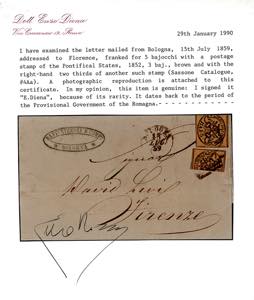 Dott. Enzo Diena
29th January 1990
I have examined the letter mailed from Bologna, 15th July 1859,
addressed to Florence, franked for 5 bajocchi with a postage
stamp of the Pontifical States, 1852, 3 baj., brown and with the
right-hand two thirds of another such stamp (Sassone Catalogue,
#4Aa). A photographic reproduction is attached to this
certificate. In my opinion, this item is genuine: I signed it
"E.Diena", because of its rarity. It dates back to the period of
the Provisional Government of the Romagna.-
BOLOGNA
15
LUG
59
Signor
David Levi
Firenze